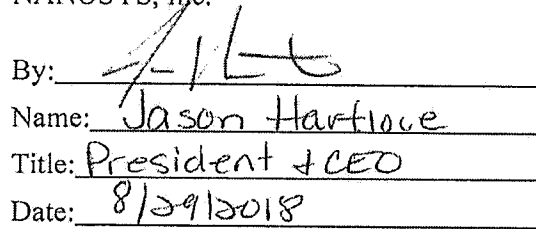 NANOSYS, Inc.
By:
Name: Jason Hartlove
Title: President & CEO
Date: 8/29/2018